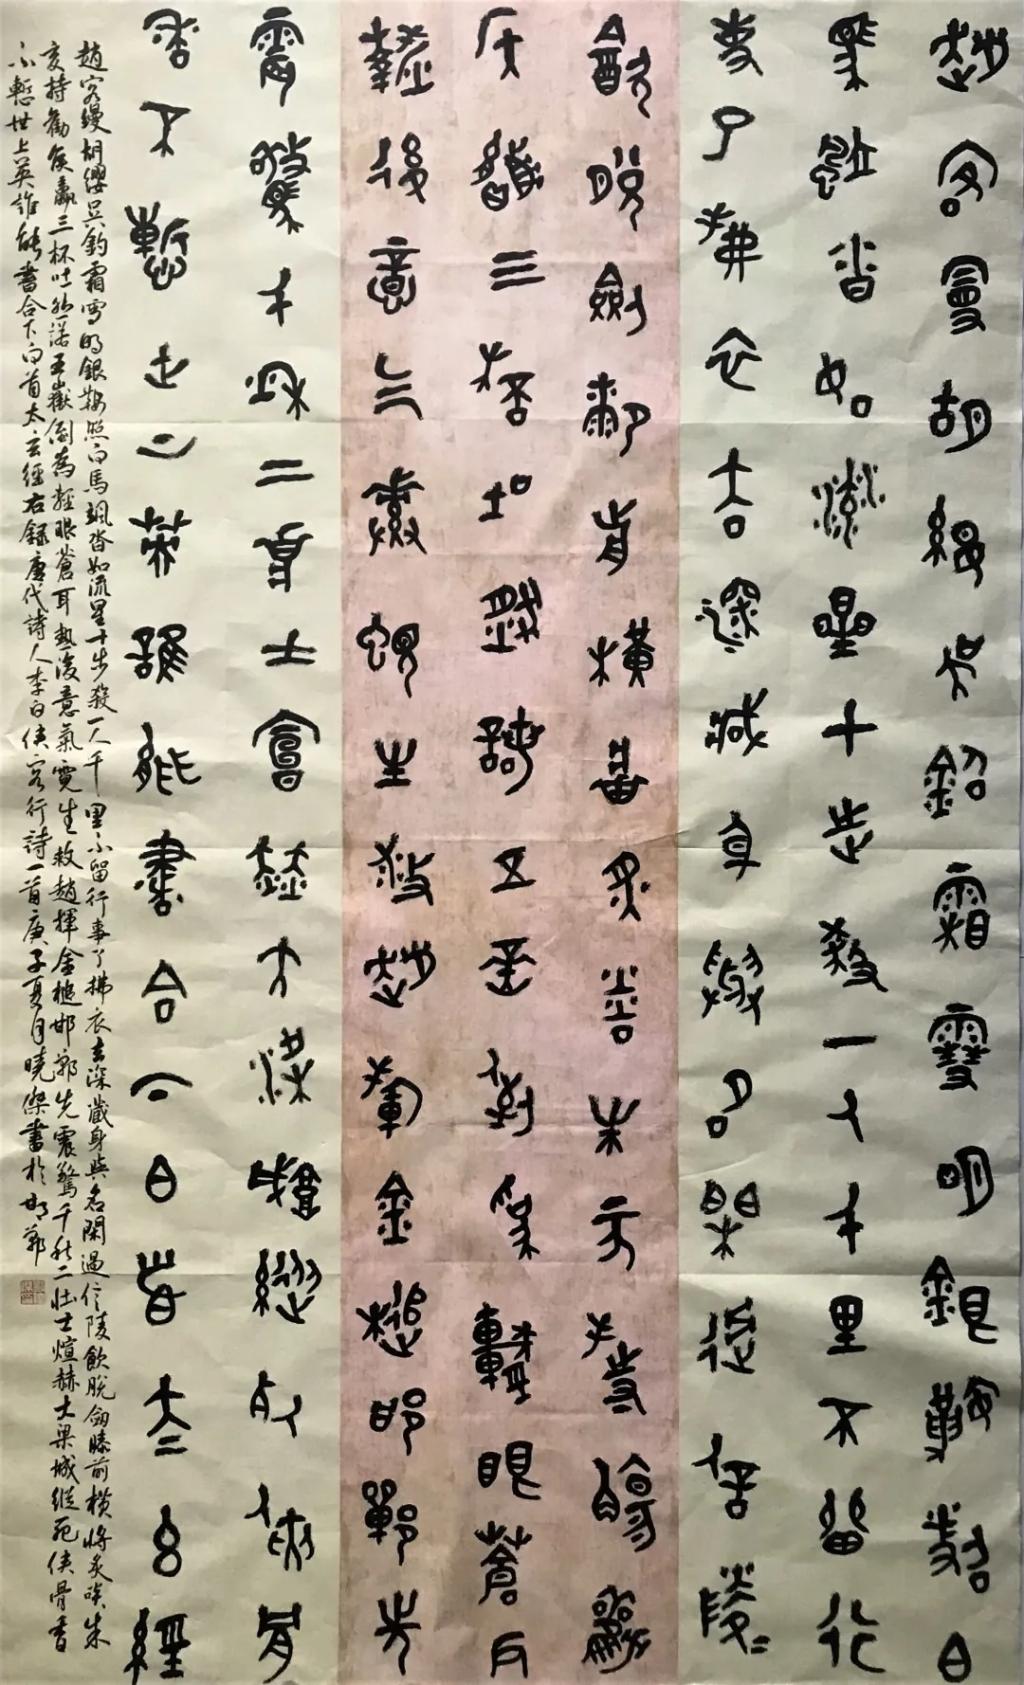 趙客縵胡纓吳鉤霜雪明銀鞍照白
馬颯沓如流星十步殺一人千里不留行
事了拂衣去深藏身與名閑過信陵
飲脫劍膝前橫將炙啖朱亥持觴勸
侯嬴三杯吐然諾五岳倒為輕眼蒼耳
熱後意氣素霓生救趙揮金槌邯鄲先
震驚千秋二壯士烜赫大梁城縱死俠骨
香不慙世上英誰能書合下白首太玄經
趙客縵胡纓吳鉤霜雪明銀鞍照白馬颯沓如流星十步殺一人千里不留行事了拂衣去深藏身與名閑過信陵飲脫劍膝前橫將炙啖朱
亥持勸侯嬴三杯吐然諾五嶽倒為輕眼蒼耳熱後意氣霓生救趙揮金槌邯鄲先震驚千秋二壯士煊赫大梁城縱死俠骨香
不慙世上英誰能書合下白首太玄經右錄唐代詩人李白俠客行詩一首庚子夏月曉傑書於邯鄲